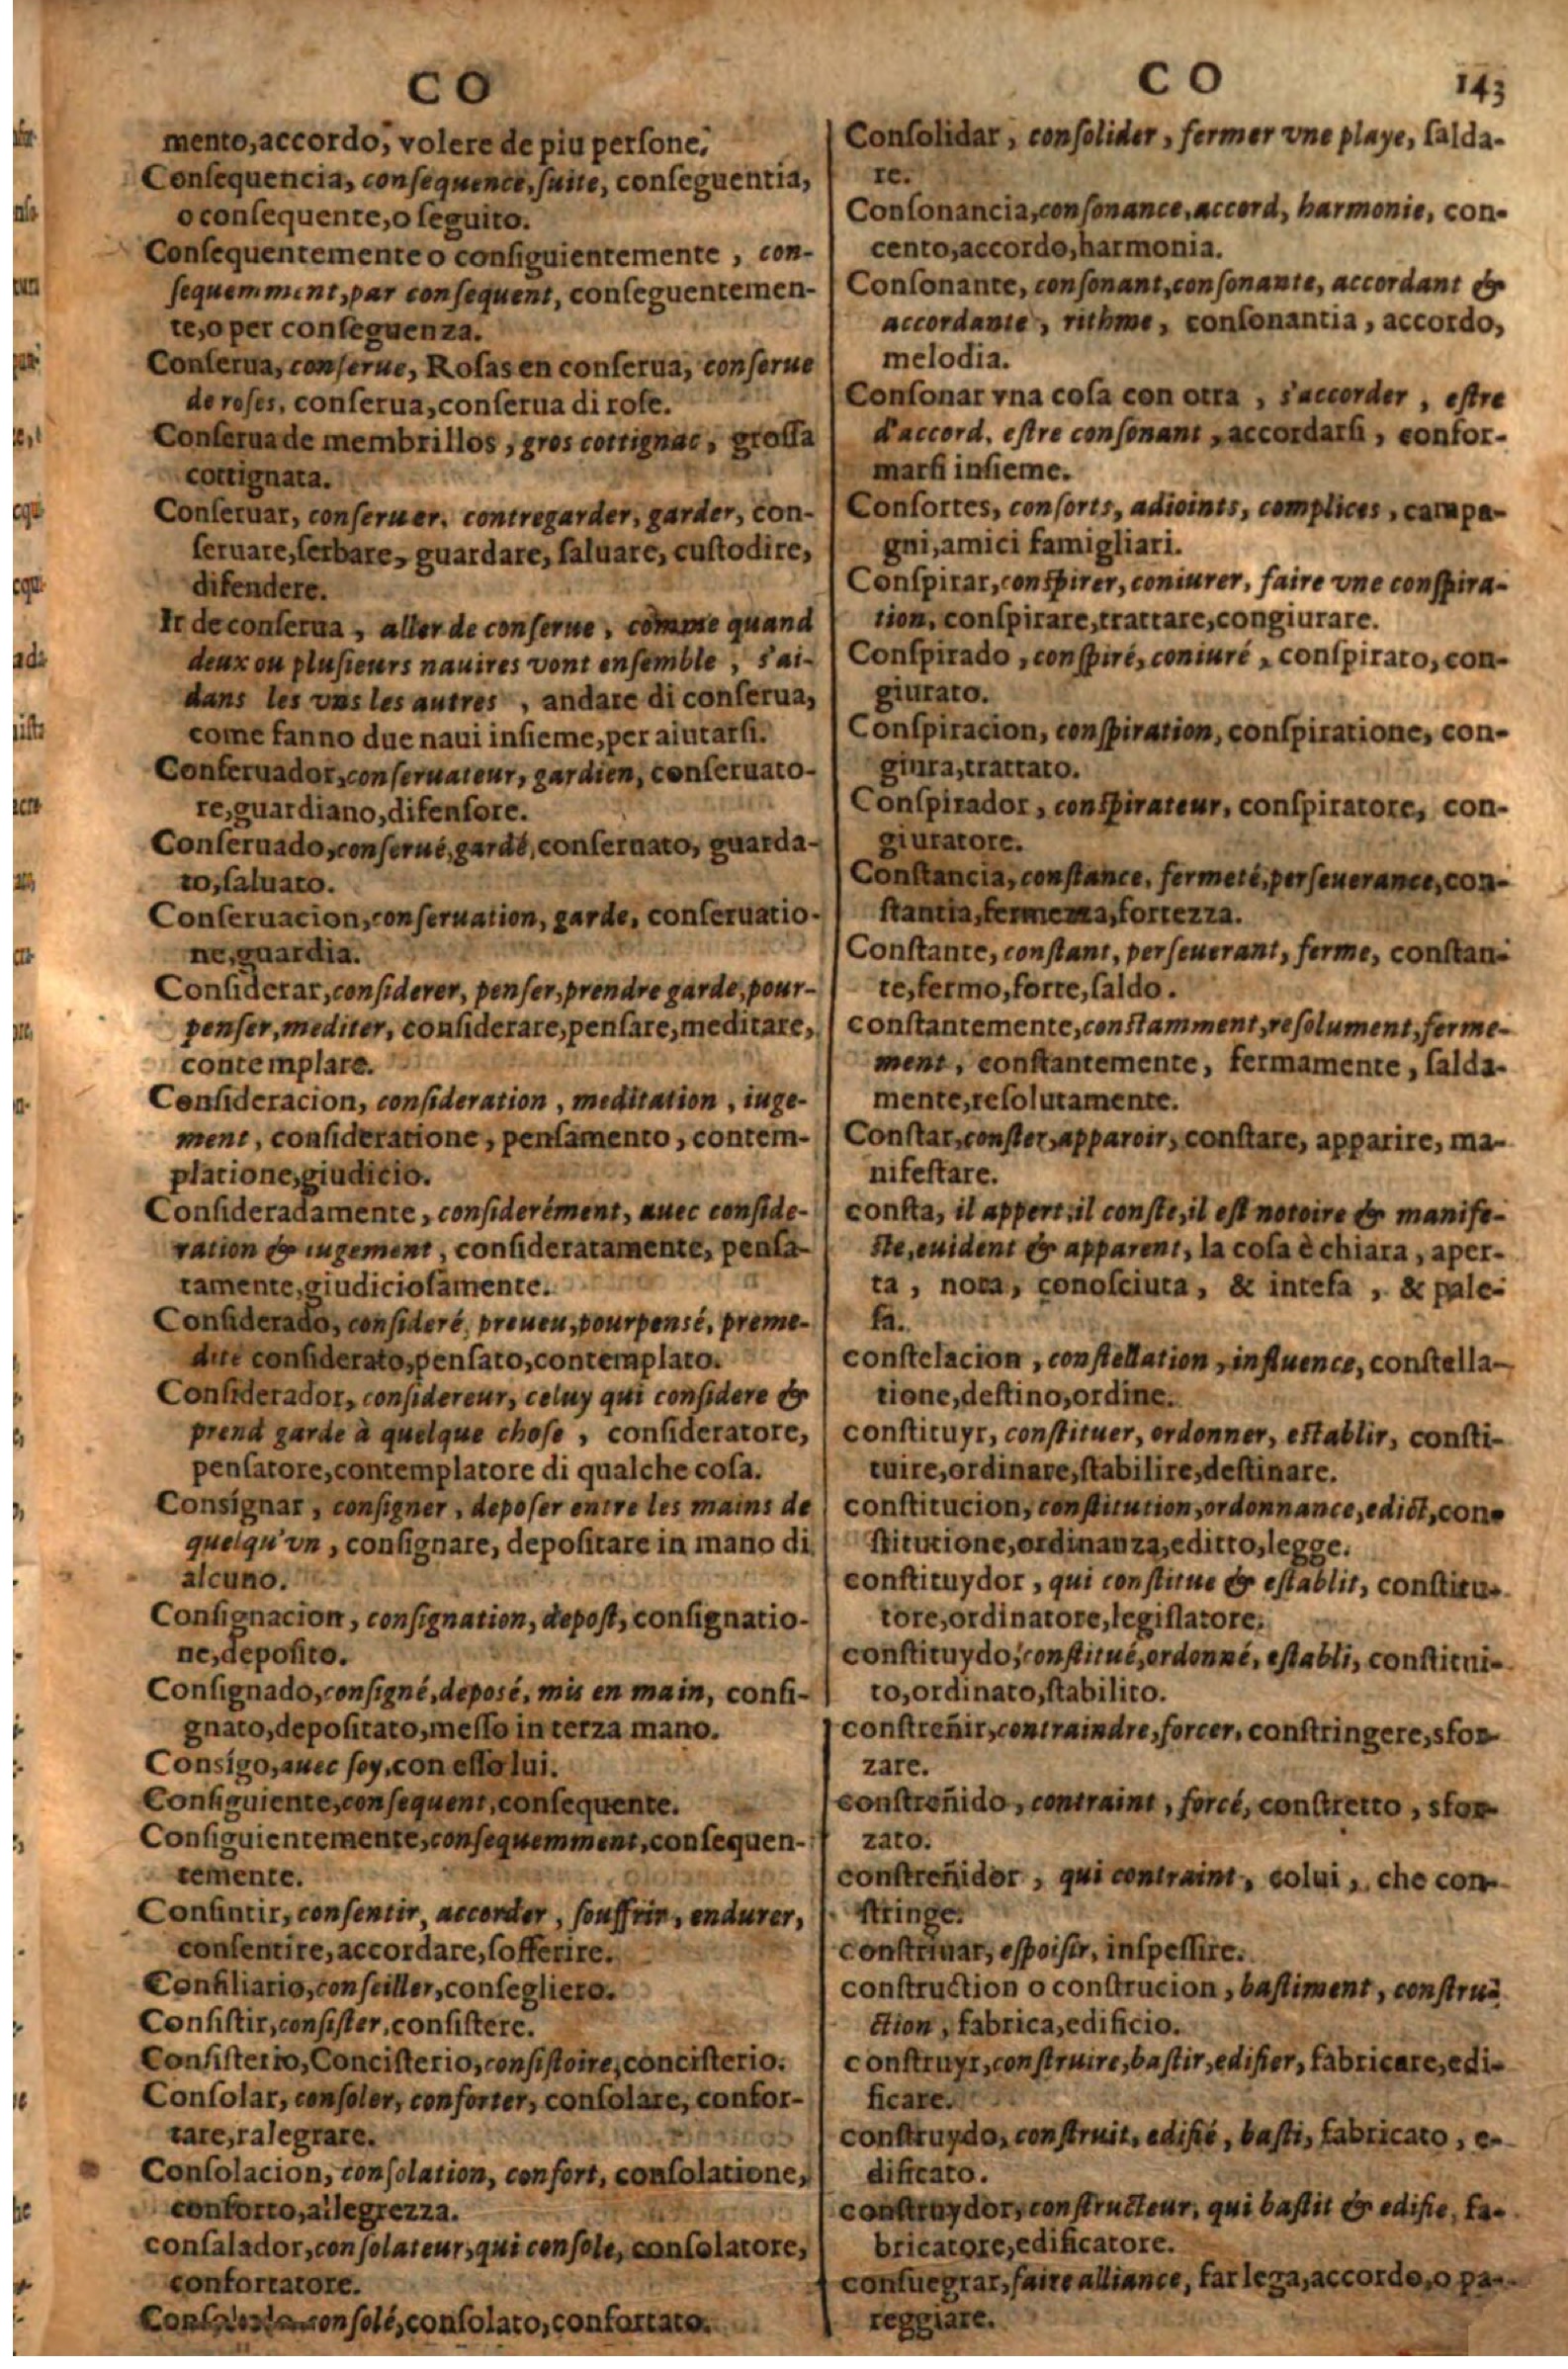 CO
mento,accordo, volere de piu perſone.
Conſequencia, conſequence,ſuite, conſeguentia,
o conſequente,o ſeguito.
Conſequentemente o conſiguientemente , con-
ſequemment,par conſequent, conſeguentemen-
te,o per conſeguenza.
Conſerua, conſerue, Roſas en conſerua, conſerue
de roſes, conſerua,conſerua di roſe.
Conſerua de membrillos , gros cottignac , groſſa
cottignata.
Conſeruar, conſeruer, contregarder, garder, con-
ſeruare,ſerbare, guardare, ſaluare, cuſtodire,
difendere.
Ir de conſerua , aller de conſerue , comme quand
deux ou pluſieurs nauires vont enſemble , s'ai-
dans les vns les autres , andare di conſerua,
come fanno due naui inſieme,per aiutarſi.
Conſeruador,conſeruateur, gardien, conſeruato-
re,guardiano,difenſore.
Conſeruado,conſerué,gardé,conſeruato, guarda-
to,ſaluato.
Conſeruacion,conſeruation, garde, conſeruatio-
ne,guardia.
Conſiderar,conſiderer, penſer,prendre garde,pour-
penſer,mediter, conſiderare,penſare,meditare,
contemplare.
Conſideracion, conſideration , meditation , iuge-
ment , conſideratione , penſamento , contem-
platione,giudicio.
Conſideradamente , conſiderément, auec conſide-
ration & iugement , conſideratamente, penſa-
tamente,giudicioſamente.
Conſiderado, conſideré, preueu,pourpensé, preme-
dité conſiderato,penſato,contemplato.
Conſiderador, considereur, celuy qui conſidere &
prend garde à quelque choſe , conſideratore,
penſatore,contemplatore di qualche coſa.
Consígnar , conſigner , depoſer entre les mains de
quelqu'vn , conſignare, depoſitare in mano di
alcuno.
Conſignacion , conſignation, depoſt, conſignatio-
ne,depoſito.
Conſignado,conſigné,deposé, mis en main, conſi-
gnato,depoſitato,meſſo in terza mano.
Consígo,auec ſoy,con eſſo lui.
Conſiguiente,conſequent,conſequente.
Conſiguientemente,conſequemment,conſequen-
temente.
Conſintir, conſentir, accorder , ſouffrir , endurer,
conſentire, accordare,ſofferire.
Conſiliario,conſeiller,conſegliero.
Conſiſtir,conſiſter,conſiſtere.
Conſiſterio,Conciſterio,conſiſtoire,conciſterio.
Conſolar, conſoler, conforter, conſolare, confor-
tare,ralegrare.
Conſolacion, conſolation, confort, conſolatione,
conforto,allegrezza.
conſalador,conſolateur,qui conſole, conſolatore,
confortatore.
conſolé,conſolato,confortato.
CO 143
Conſolidar , conſolider , fermer vne playe, ſalda-
re.
Conſonancia,conſonance,accord, harmonie, con-
cento,accordo,harmonia.
Conſonante, conſonant,conſonante, accordant &
accordante , rithme , conſonantia , accordo,
melodia.
Conſonar vna coſa con otra , s'accorder , eſtre
d'accord, eſtre conſonant , accordarſi , confor-
marſi inſieme.
Conſortes, conſorts, adioints, complices , campa-
gni,amici famigliari.
Conſpirar,conſpirer, coniurer, faire vne conſpira-
tion, conſpirare,trattare,congiurare.
Conſpirado , conſpiré, coniuré , conſpirato, con-
giurato.
Conſpiracion, conſpiration, conſpiratione, con-
giura,trattato.
Conſpirador , conſpirateur, conſpiratore, con-
giuratore.
Conſtancia, conſtance, fermeté,perſeuerance,con-
ſtantia,fermezza,fortezza.
Conſtante, conſtant, perſeuerant, ferme, conſtan-
te,fermo,forte,ſaldo.
conſtantemente,conſtamment,reſolument,ferme-
ment , conſtantemente, fermamente , ſalda-
mente,reſolutamente.
Conſtar,conſter,apparoir, conſtare, apparire, ma-
nifeſtare.
conſta, il appert,il conſte,il eſt notoire & manife-
ſte,euident & apparent, la coſa è chiara , aper-
ta , nota, conoſciuta, & inteſa , & pale-
ſa.
conſtelacion , conſtellation , influence, conſtella-
tione,deſtino,ordine.
conſtituyr, conſtituer, ordonner, eſtablir, conſti-
tuire,ordinare,ſtabilire,deſtinare.
conſtitucion, conſtitution,ordonnance,edict,con-
ſtitutione,ordinanza,editto,legge.
conſtituydor , qui conſtitue & eſtablit, conſtitu-
tore,ordinatore,legiſlatore.
conſtituydo,conſtitué,ordonné, eſtabli, conſtitui-
to,ordinato,ſtabilito.
conſtreñir,contraindre,forcer, conſtringere,sfor-
zare.
conſtreñido , contraint , forcé, conſtretto , sfor-
zato.
conſtreñidor , qui contraint , colui , che con-
ſtringe.
conſtriuar, eſpoiſir, inſpeſſire.
conſtruction o conſtrucion , baſtiment , conſtru-
ction , fabrica,edificio.
conſtruyr,conſtruire,baſtir,edifier, fabricare,edi-
ficare.
conſtruydo, conſtruit, edifié , baſti, fabricato , e-
dificato.
conſtruydor, conſtructeur, qui baſtit & edifie, fa-
bricatore,edificatore.
conſuegrar,faire alliance, far lega,accordo,o pa-
reggiare.